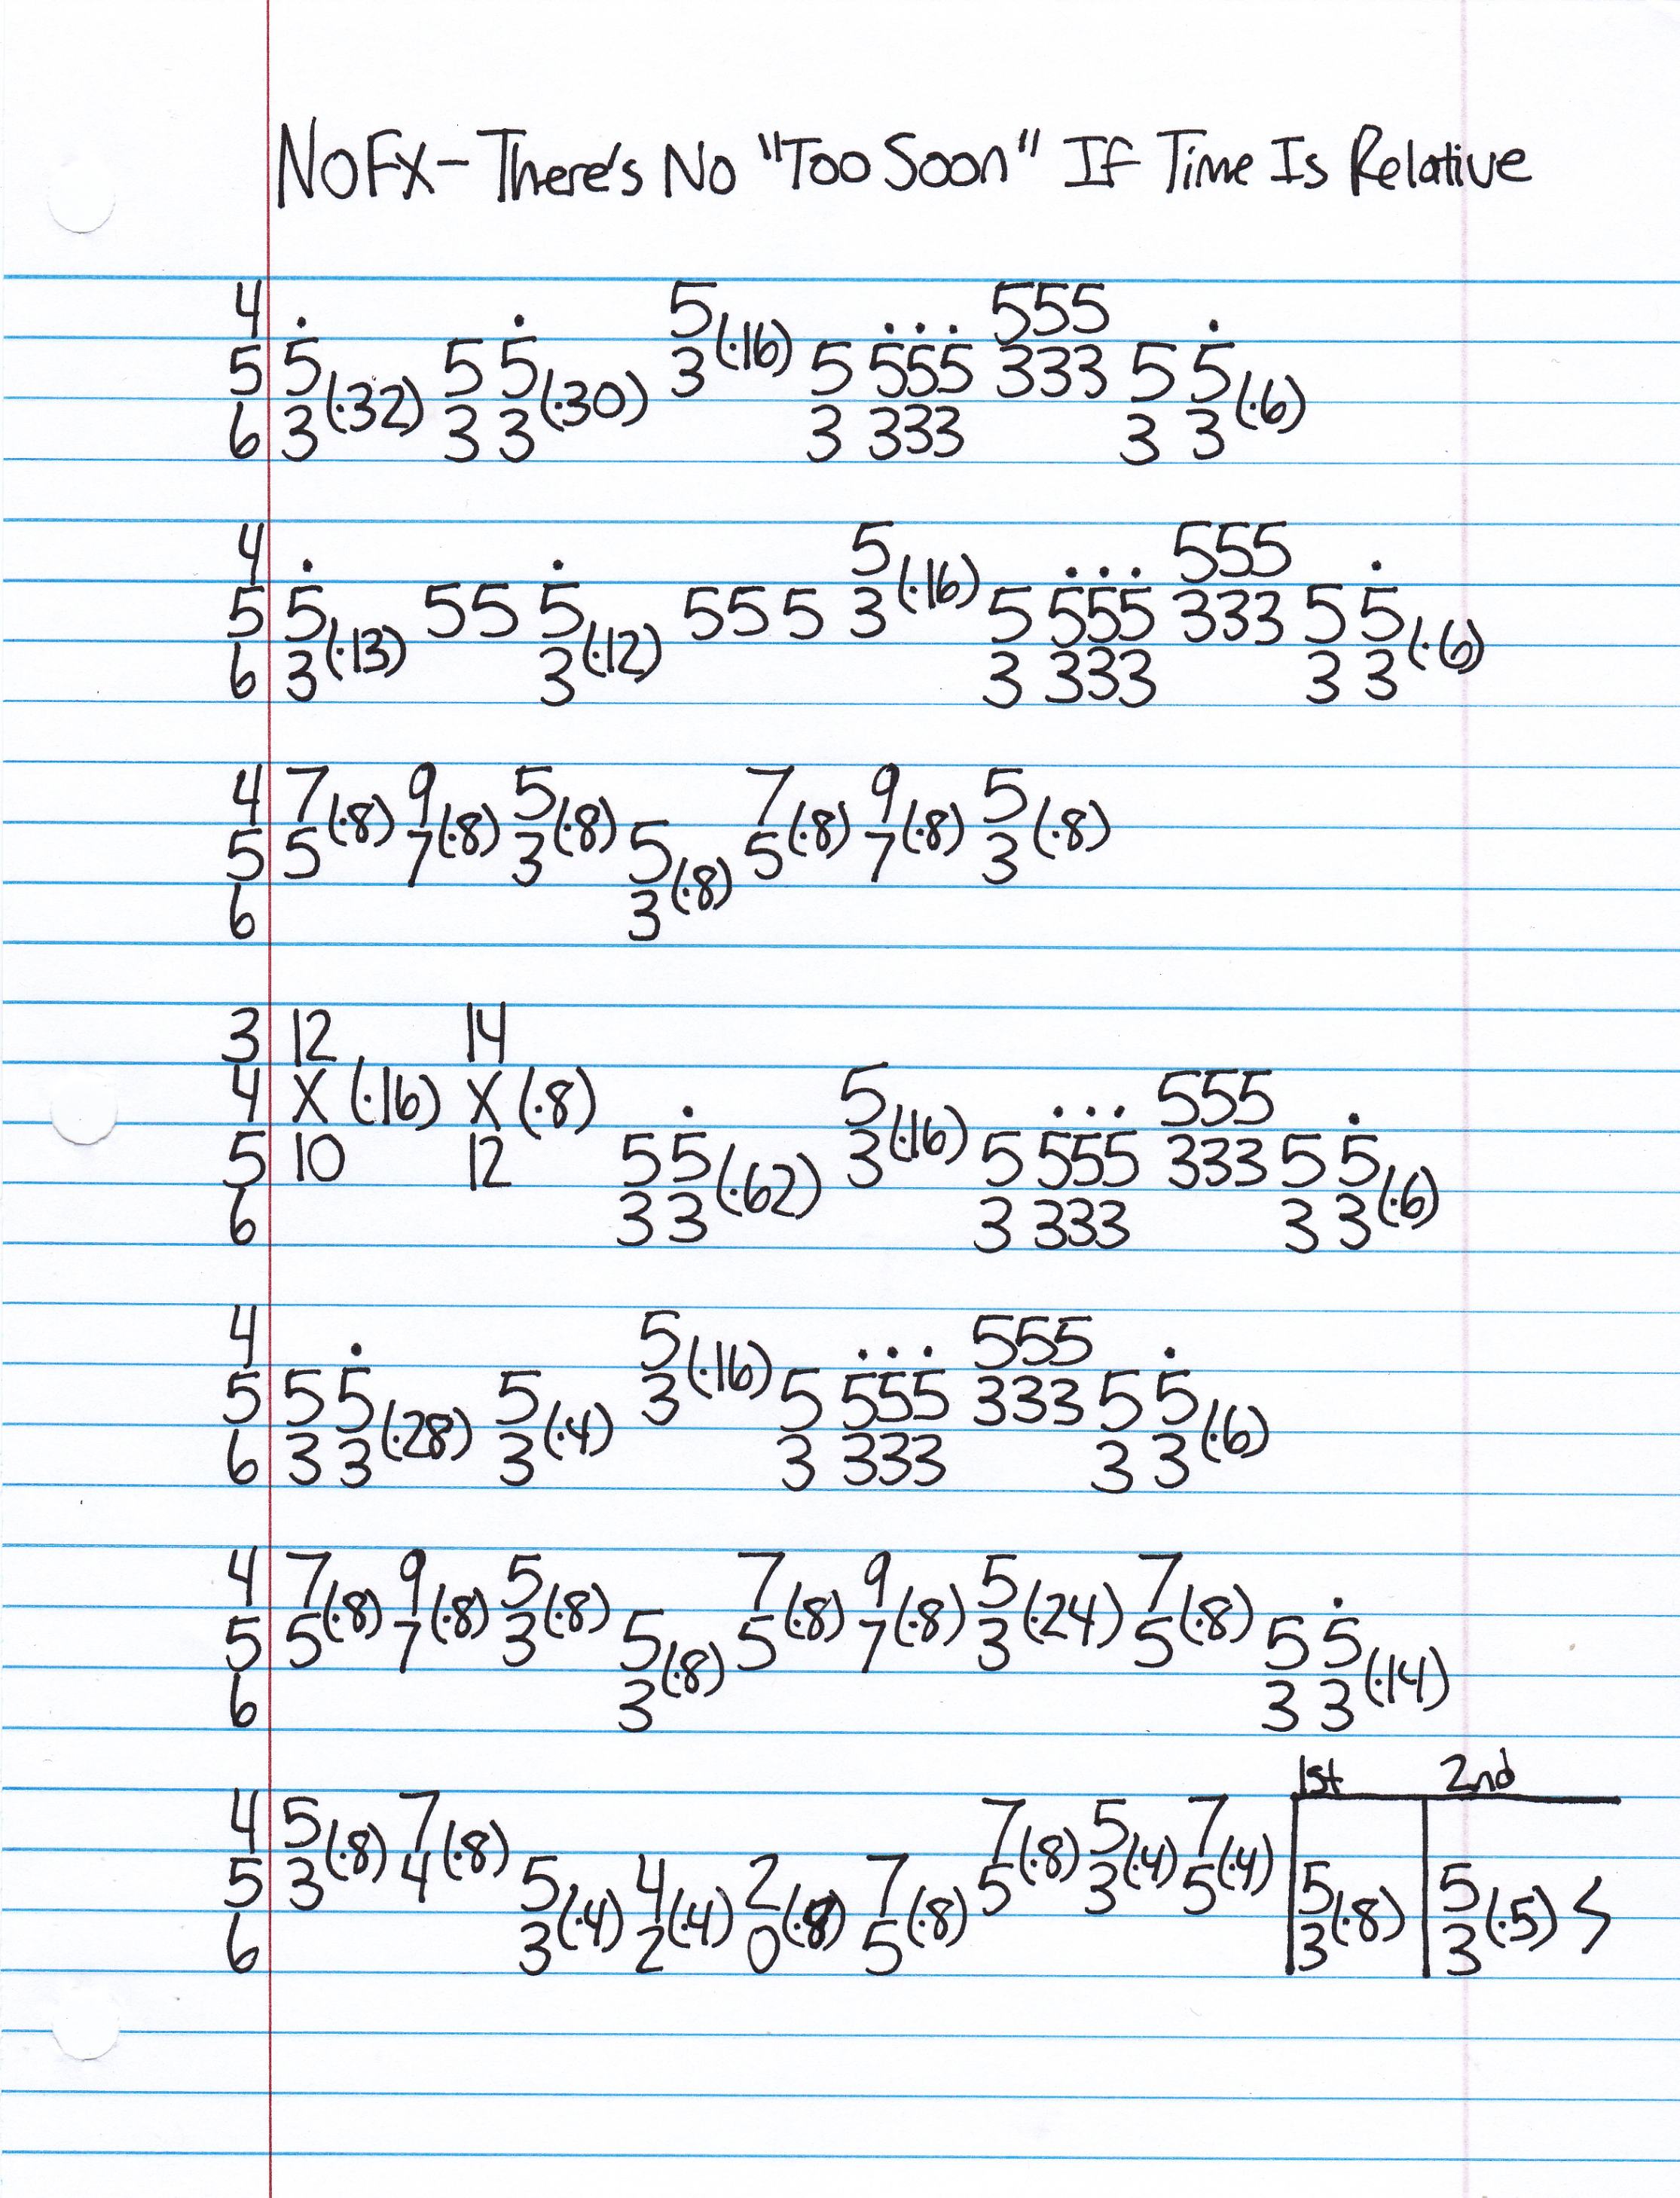 NOFX - There's No "Too Soon" If Time Is Relative
4 5 555
5 5 5 5 3 (·16) 5 555 333 5 5
6 3 (·32) 3 3 (·30) 3 333 3 3 (·6)
4 5 555
5 5 55 5 555 3 (·16) 5 555 333 5 5
6 3 (·13) 3 (·12) 3 333 3 3 (·6)
4 7 (·8) 9 (·8) 5 (·8) 7 (·8) 9 (·8) 5 (·8)
5 5 7 3 5 5 7 3
6 3 (·8)
3 12 14
4 X (·16) X (·8) 5 555
5 10 12 5 5 3 (·16) 5 555 333 5 5
6 3 3 (·62) 3 333 3 3 (·6)
4 5 555
5 5 5 5 3 (·16) 5 555 333 5 5
6 3 3 (·28) 3 (·4) 3 333 3 3 (·6)
4 7 (·8) 9 (·8) 5 (·8) 7 (·8) 9 (·8) 5 (·24) 7 (·8)
5 5 7 3 5 5 7 3 5 5 5
6 3 (·8) 3 3 (·14)
1st 2nd
4 5 (·8) 7 (·8) 7 (·8) 5 (·4) 7 (·4)
5 3 4 5 4 2 7 5 3 5 5 5
6 3 (·4) 2 (·4) 0 (·8) 5 (·8) 3 (·8) 3 (·5)